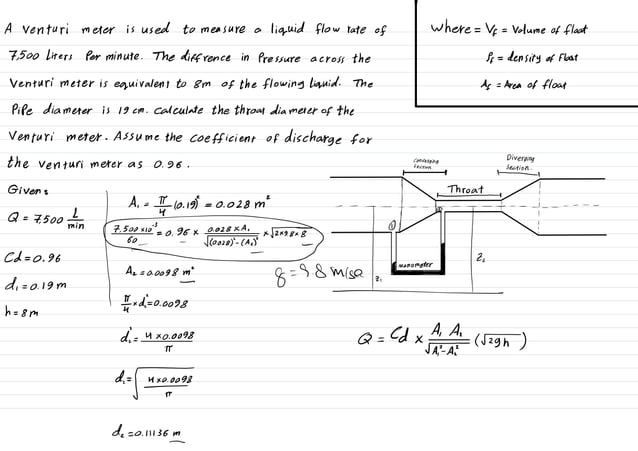 A venturi meter is used to measure a liquid flow rate of
7,500 Liters Per minute. The diffrence in Pressure across the
Venturi meter is equivalent to 8m of the flowing liquid. The
Pipe diameter is 19 cm. calculate the throat diameter of the
Venturi meter. Assume the coefficient of discharge for
the venturi meter as 0.96.
where = Vf = Volume of float
ρf = density of Float
Af = Area of float
Given:
Q = 7,500 L/min
Cd = 0.96
d₁ = 0.19 m
h = 8 m
A₁ = π/4 (0.19)² = 0.028 m²
7,500 x10⁻³/60 = 0.96 x 0.028 x A₂/√(0.028)²-(A₂)² x √2x9.8x8
A₂ = 0.0098 m²
π/4 x d₂² = 0.0098
d₂² = 4 x 0.0098/π
d₂ = √4 x 0.0098/π
d₂ = 0.11136 m
Converging Section
Diverging Section
Throat
①
manometer
Z₁
Z₂
Q = Cd x A₁ A₂/√A₁²-A₂² (√2gh)